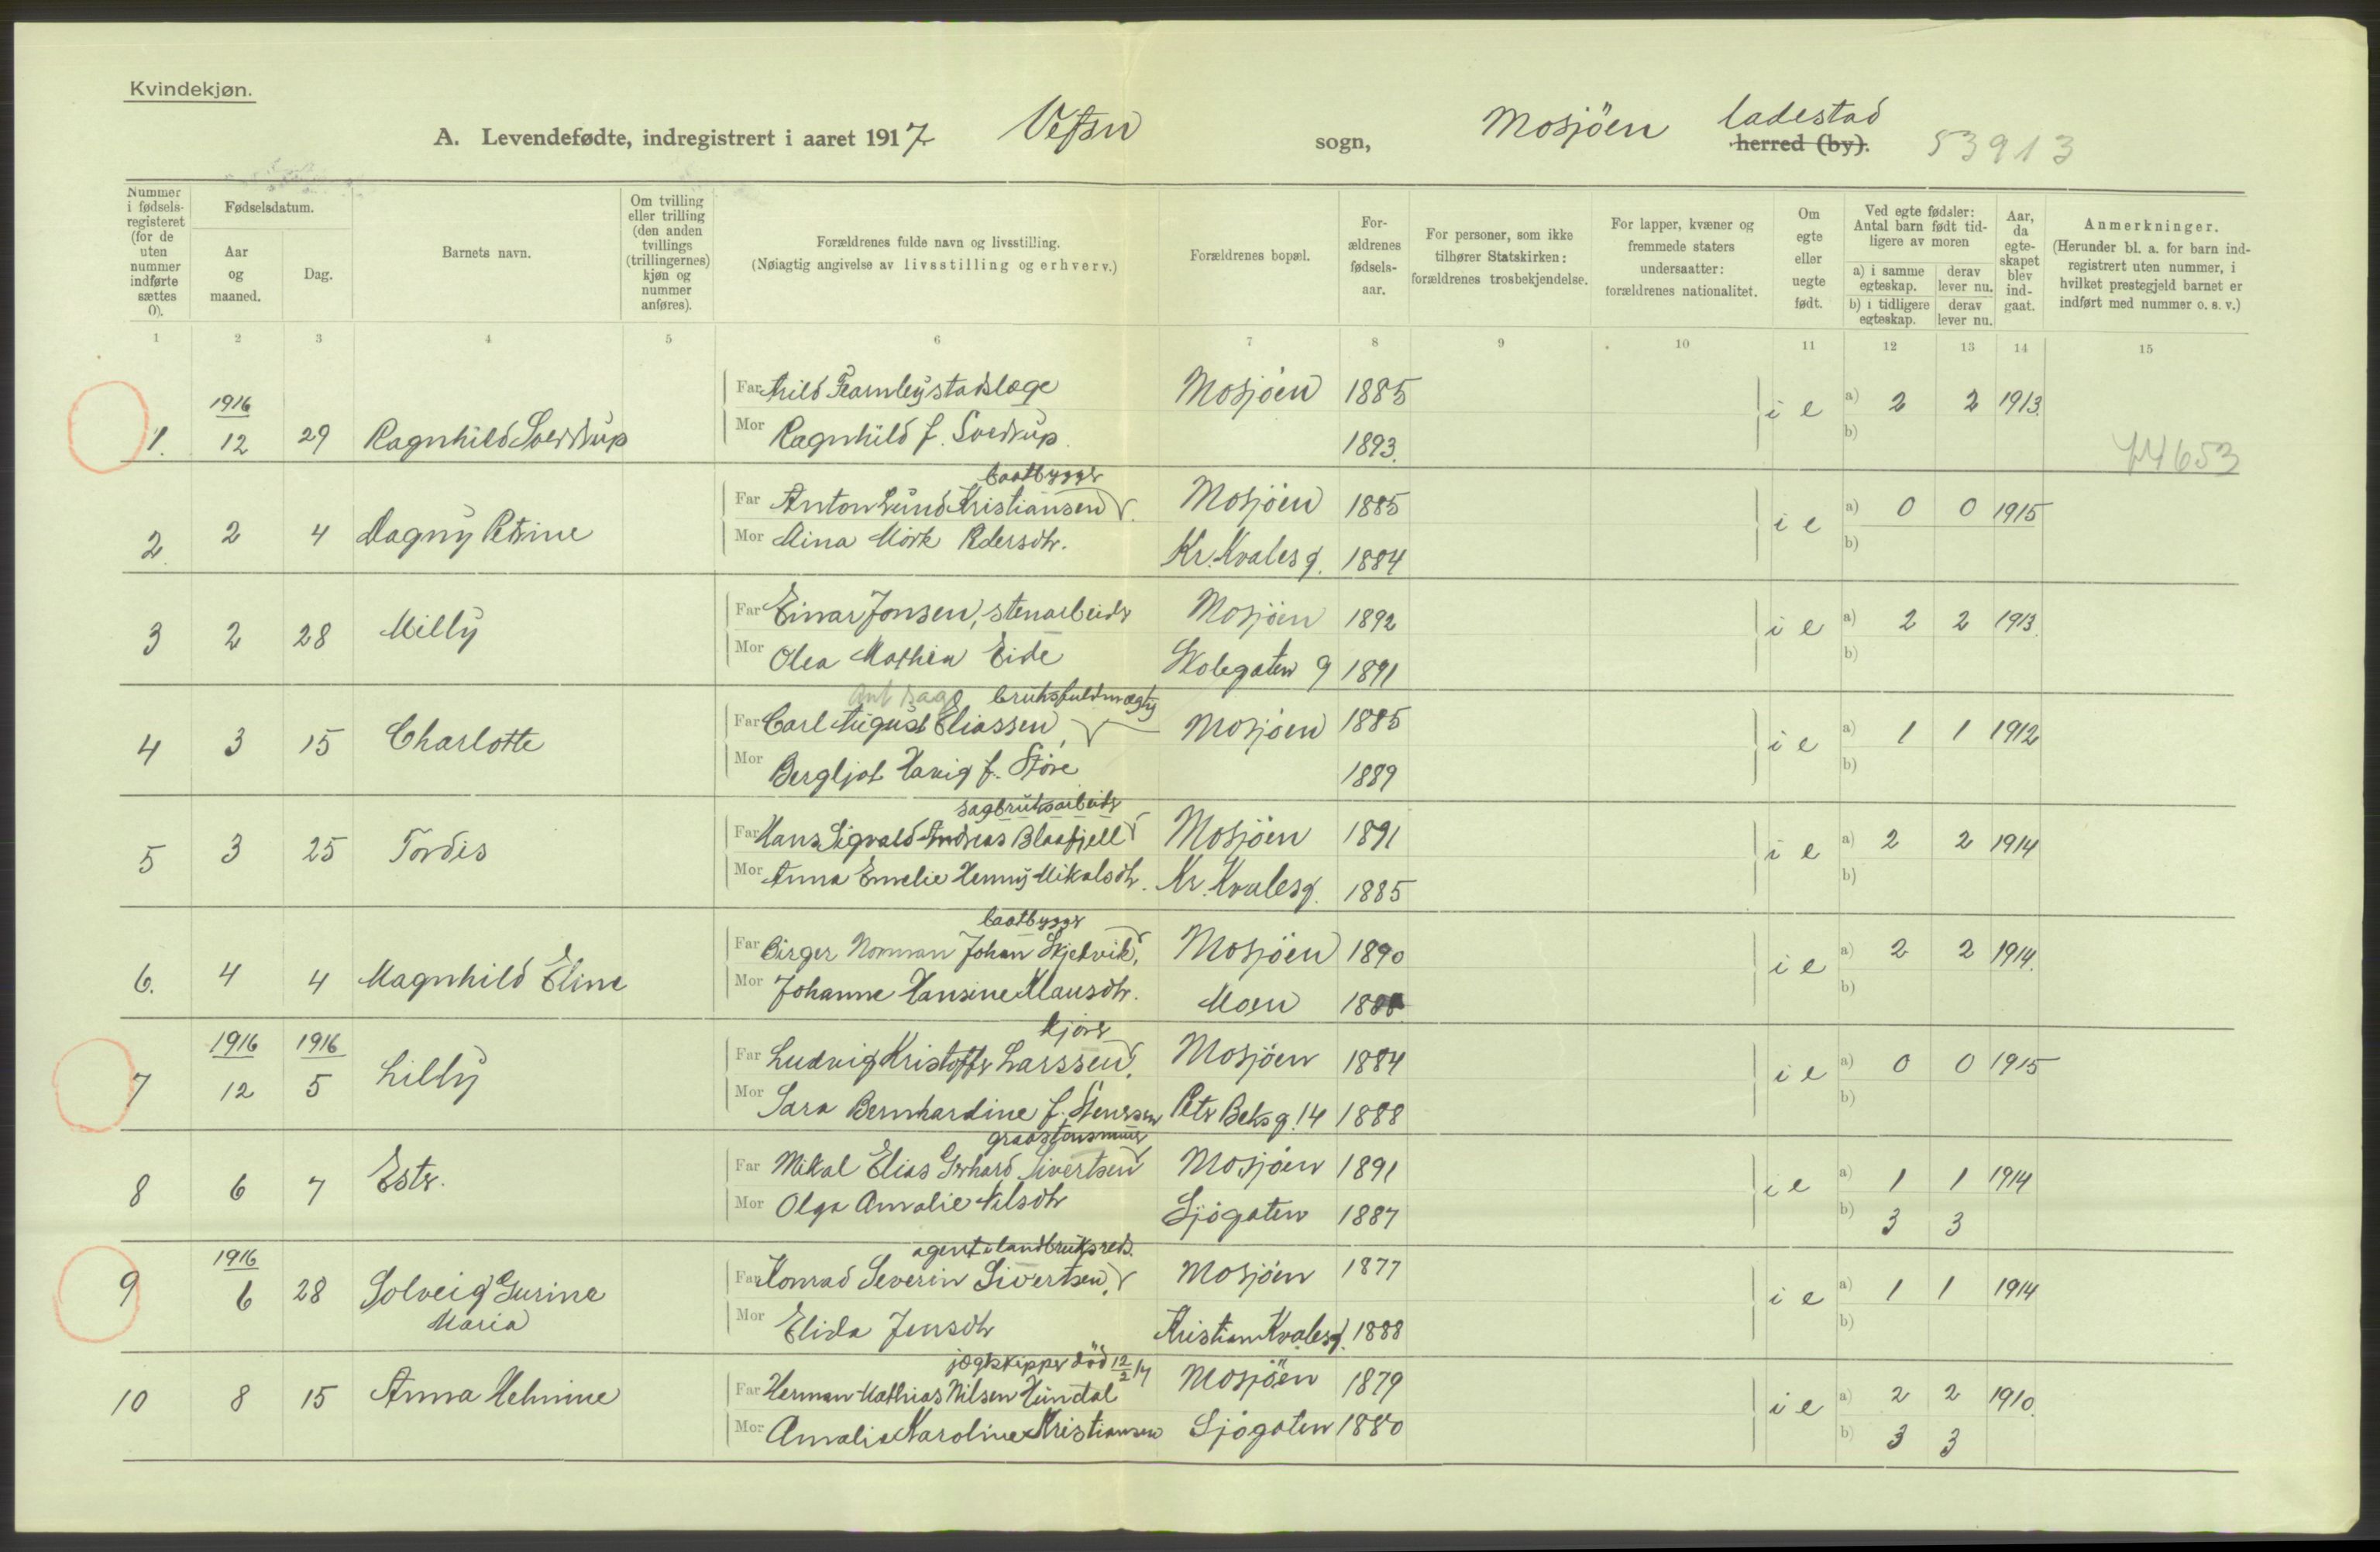 Kvindekjøn.
A. Levendefødte, indregistrert i aaret 1917 Vefsn sogn, Mosjöen ladestad herred (by). 53913
Nummer i fødsels-registeret (for de uten nummer indførte sættes 0).
Fødselsdatum.
Aar og maaned.
Dag.
Barnets navn.
Om tvilling eller trilling (den anden tvillings (trillingernes) kjøn og nummer anføres).
Forældrenes fulde navn og livsstilling.
(Nøiagtig angivelse av livsstilling og erhverv.)
Forældrenes bopæl.
For-ældrenes fødsels-aar.
For personer, som ikke tilhører Statskirken: forældrenes trosbekjendelse.
For lapper, kvæner og fremmede staters undersaatter: forældrenes nationalitet.
Om egte eller uegte født.
Ved egte fødsler: Antal barn født tid-ligere av moren
a) i samme egteskap.
derav lever nu.
b) i tidligere egteskap.
derav lever nu.
Aar, da egte-skapet blev ind-gaat.
Anmerkninger.
(Herunder bl. a. for barn ind-registrert uten nummer, i hvilket prestegjeld barnet er indført med nummer o. s. v.)
1 2 3 4 5 6 7 8 9 10 11 12 13 14 15
1916
Far Arild Fearnley stadslæge Mosjöen 1885
1. 12 29 Ragnhild Sverdrup i e a) 2 2 1913.
Mor Ragnhild f. Sverdrup. 1893. b)
74653
baatbygger
Far Anton Lund Kristiansen Mosjöen 1885
2. 2 4 Dagny Petrine i e a) 0 0 1915
Mor Mina Mörk Pedersdtr. Kr. Kvalesg. 1884 b)
Far Einar Jonsen, stenarbeider Mosjöen 1892
3 2 28 Milly i e a) 2 2 1913.
Mor Olea Mathea Eide Skolegaten 9 1891 b)
Ant sagg bruksfuldmægtig
Far Carl August Eliassen Mosjöen 1885
4 3 15 Charlotte i e a) 1 1 1912
Mor Bergljot Havig f. Störe 1889 b)
sagbruksarbeider
Far Hans Sigvald Andreas Blaafjell Mosjöen 1891
5 3 25 Tordis i e a) 2 2 1914
Mor Anna Emelie Henny Mikalsdtr. Kr. Kvalesg. 1885 b)
baatbygger
Far Birger Norman Johan Skjelvik, Mosjöen 1890
6. 4 4 Magnhild Eline i e a) 2 2 1914.
Mor Johanne Hansine Klausdtr. Moen b)
kjører
1916 1916
Far Ludvig Kristoffer Larssen, Mosjöen 1884
7 12 5 Lilly i e a) 0 0 1915
Mor Sara Bernhardine f. Stenersen Peter Beksg. 14 1888 b)
graastensmurer
Far Mikal Elias Gerhard Sivertsen Mosjöen 1891
8 6 7 Ester. i e a) 1 1 1914
Mor Olga Amalie Nilsdtr Sjögaten 1887 b) 3 3
agent i landbruksreds.
1916
Far Konrad Severin Sivertsen, Mosjöen 1877
9 6 28 Solveig Gurine Maria i e a) 1 1 1914
Mor Elida Jensdtr Kristian Kvalesg. 1888 b)
jægtskipper död 12/2 17
Far Herman Mathias Nilsen Hundal Mosjöen 1879
10 8 15 Anna Helmine i e a) 2 2 1910.
Mor Amalie Karoline Kristiansen Sjögaten 1880 b) 3 3